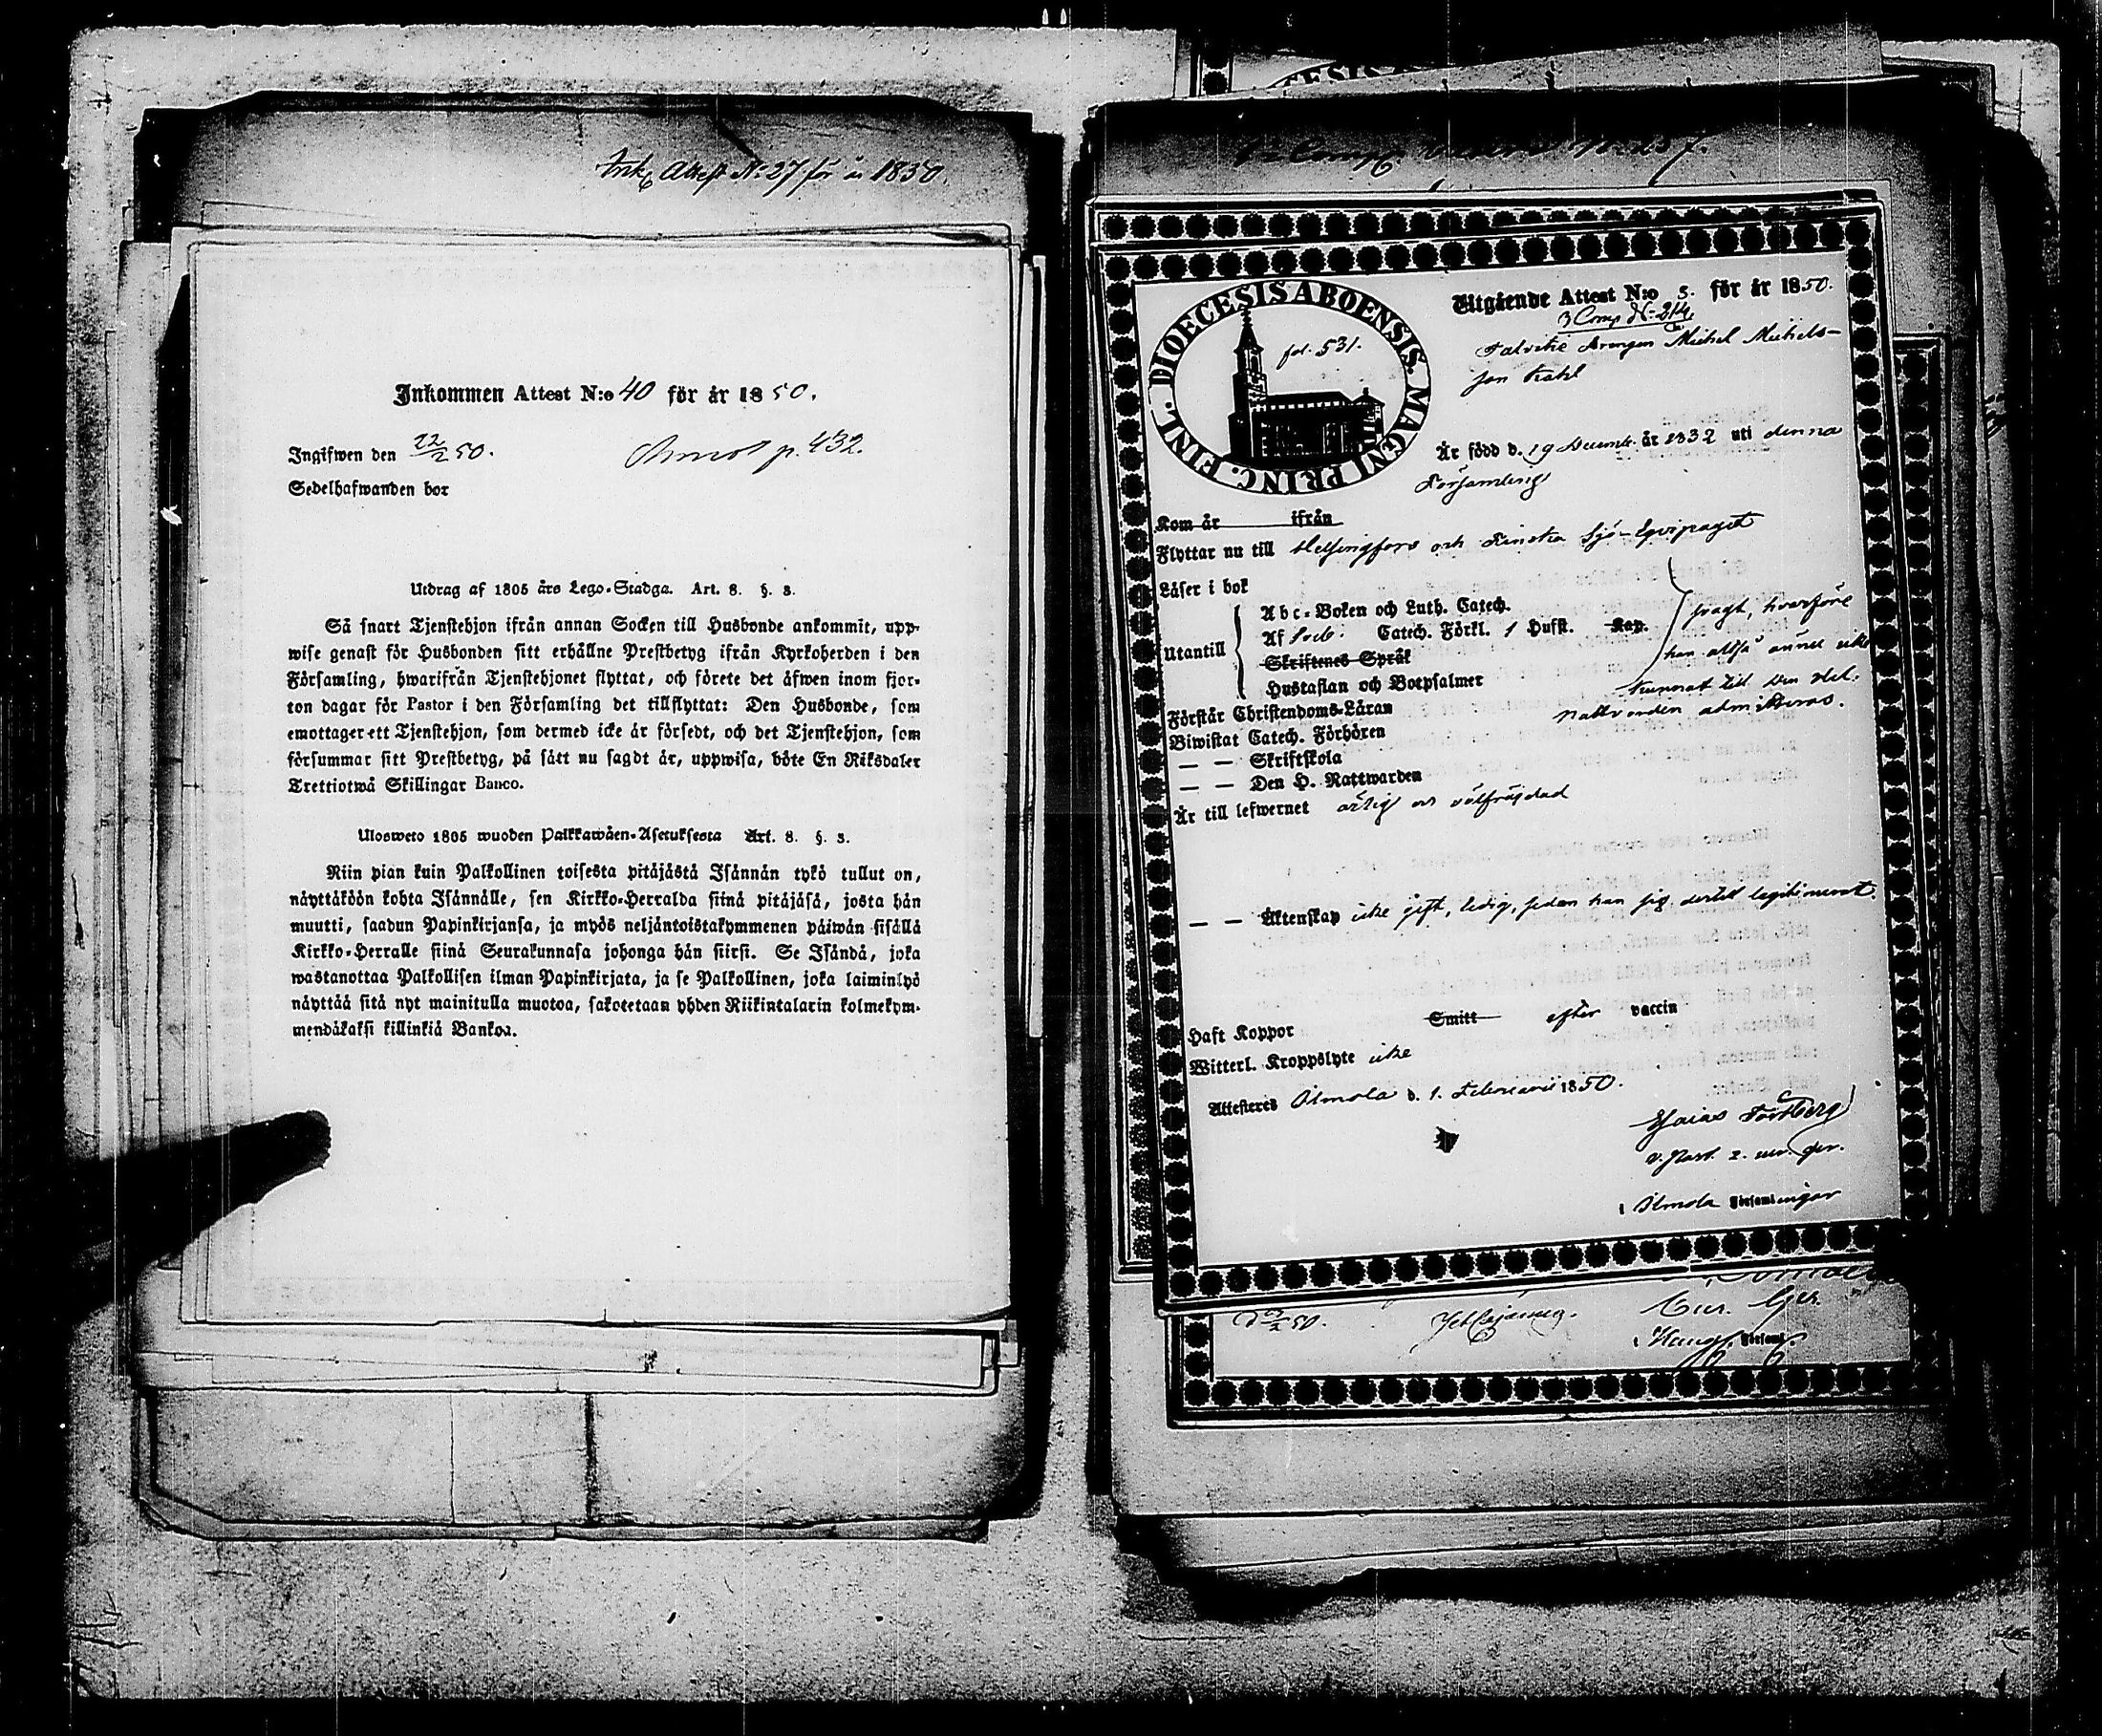 Ink. Attest N:o 27 för år 1850.
Inkommen Attest N:o 40 för år 1850.
Ingifwen den 22/2 50.
p. 432.
Sedelhafwanden bor
Utdrag af 1805 års Lego-Stadga. Art. 8. §. 3.
Så snart Tjenstehjon ifrån annan Socken till Husbonde ankommit, upp-
wise genast för Husbonden sitt erhållne Prestbetyg ifrån Kyrkoherden i den
Församling, hwarifrån Tjenstehjonet flyttat, och förete det åfwen inom fjor-
ton dagar för Pastor i den Församling det tillflyttat: Den Husbonde, som
emottager ett Tjenstehjon, som dermed icke är försedt, och det Tjenstehjon, som
försummar sitt Prestbetyg, på sått nu sagdt är, uppwisa, böte En Riksdaler
Trettiotwå Skillingar Banco.
Ulosweto 1805 wuoden Palkkawåen-Asetuksesta Art. 8. §. 3.
Niin pian kuin Palkollinen toisesta pitåjåstå Isånnån tykö tullut on,
nåyttåköön kohta Isånnålle, sen Kirkko-Herralda siinå pitåjåså, josta hån
muutti, saadun Papinkirjansa, ja myös neljåntoistakymmenen påiwån sisållå
Kirkko-Herralle siinå Seurakunnasa johonga hån siirsi. Se Isåndå, joka
wastanottaa Palkollisen ilman Papinkirjata, ja se Palkollinen, joka laiminlyö
nåyttåå sitå nyt mainitulla muotoa, sakotetaan yhden Riikintalarin kolmekym-
mendåkaksi killinkiå Bankoa.
DIOECESIS ABOENSIS. MAGNI PRINC. FINL.
fol. 531.
Utgående Attest N:o 5. för år 1850.
3 Comp N:o 214
Drengen Michel Michels-
son
Är född d. 19 Decemb. år 1832 uti denna
Församling
Kom år ifrån
Flyttar nu till Helsingfors och Finska Sjö-Equipaget
Låser i bok
Utantill
Abc-Boken och Luth. Catech.
Af Catech. Förkl. 1 Hufst. Kap.
Skriftenes Språk
Hustaflan och Botpsalmer
svagt, hvarföre
han altså ännu icke
kunnat till den Hel.
nattvarden admitteras.
Förstår Christendoms-Låran
Biwistat Catech. Förhören
— — Skriftskola
— — Den H. Nattwarden
Är till lefwernet ärlig och välfräjdad
— — Äktenskap icke gift, ledig, sedan han sig dertill legitimerat.
Haft Koppor Smitt efter vaccin
Witterl. Kroppslyte icke
Attesteras Ilmola d. 1. Februarii 1850.
Esaias Forsberg
v. Past.
i Ilmola Församlingar
50.
Cur. Ger.
Församl.